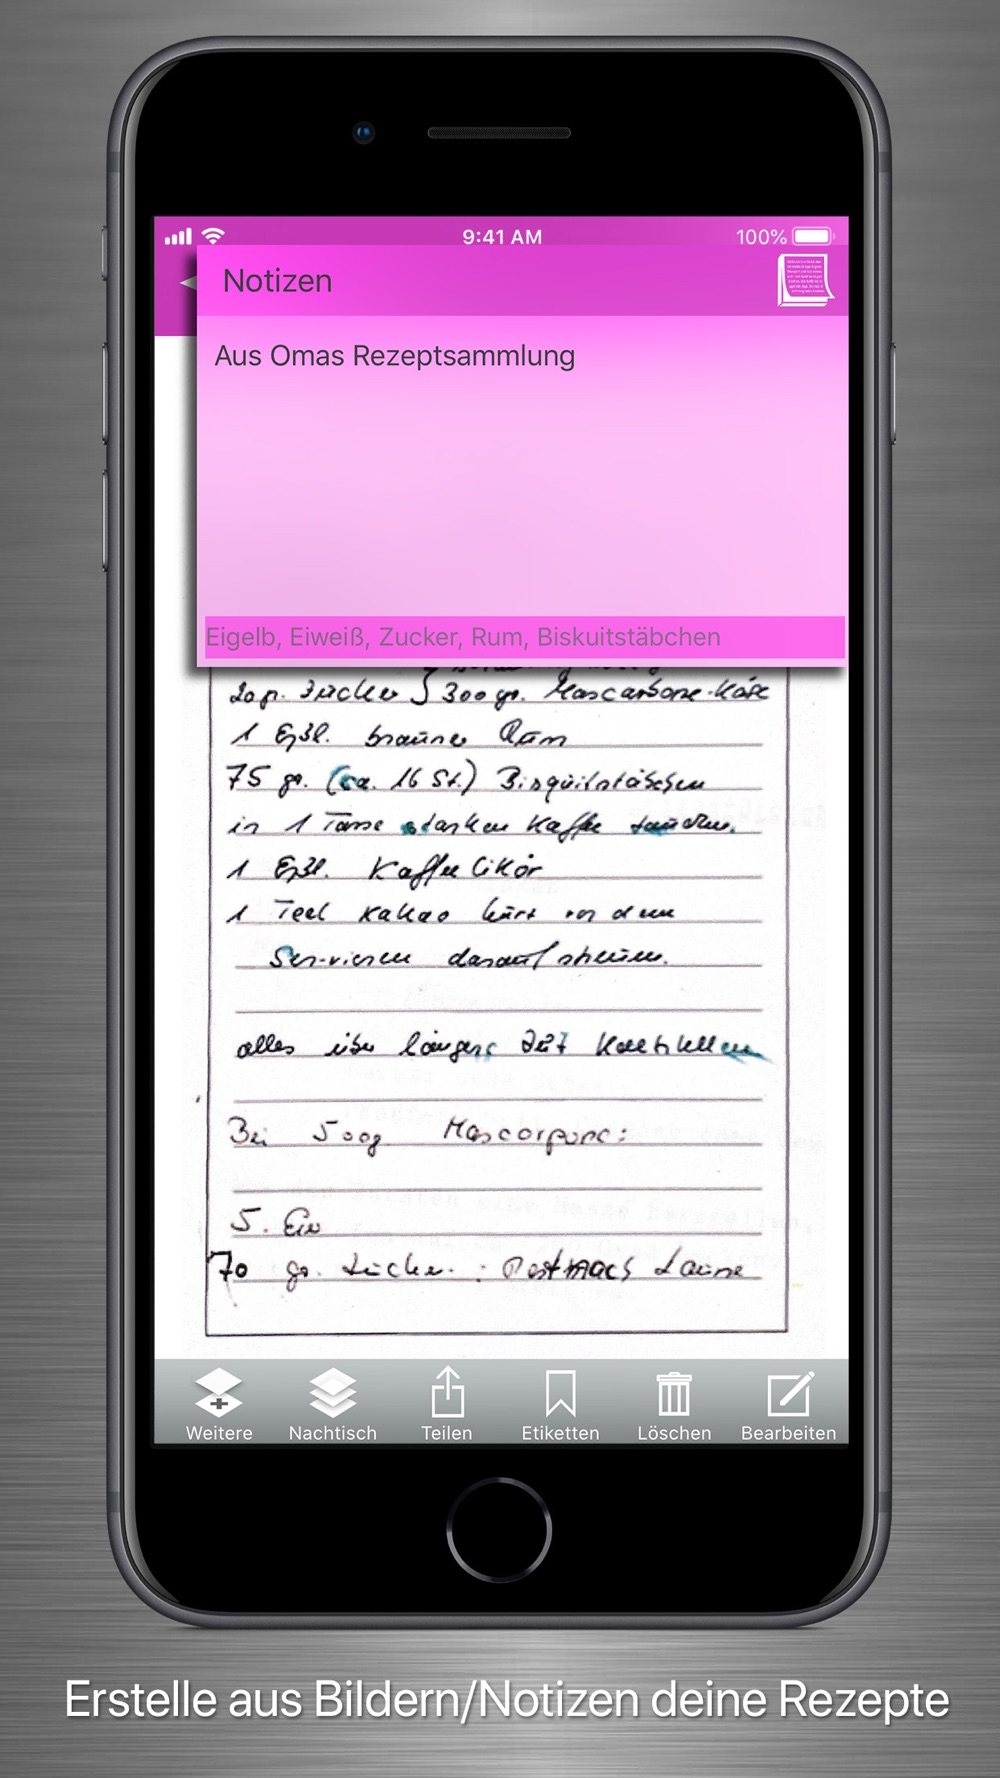 9:41 AM
100%
Notizen
Aus Omas Rezeptsammlung
Eigelb, Eiweiß, Zucker, Rum, Biskuitstäbchen
20 gr. Zucker } 300 gr. Mascarbone-Käse
1 Eßl. brauner Rum
75 gr. (ca. 16 St.) Bisquitstäbchen
in 1 Tasse starken Kaffee tauchen.
1 Eßl. Kaffee Likör
1 Teel Kakao kurz vor dem
Servieren darauf streuen.
alles über längere Zeit kaltstellen
Bei 500g Mascarpone:
5. Eier
70 gr. Zucker. :
Weitere
Nachtisch
Teilen
Etiketten
Löschen
Bearbeiten
Erstelle aus Bildern/Notizen deine Rezepte